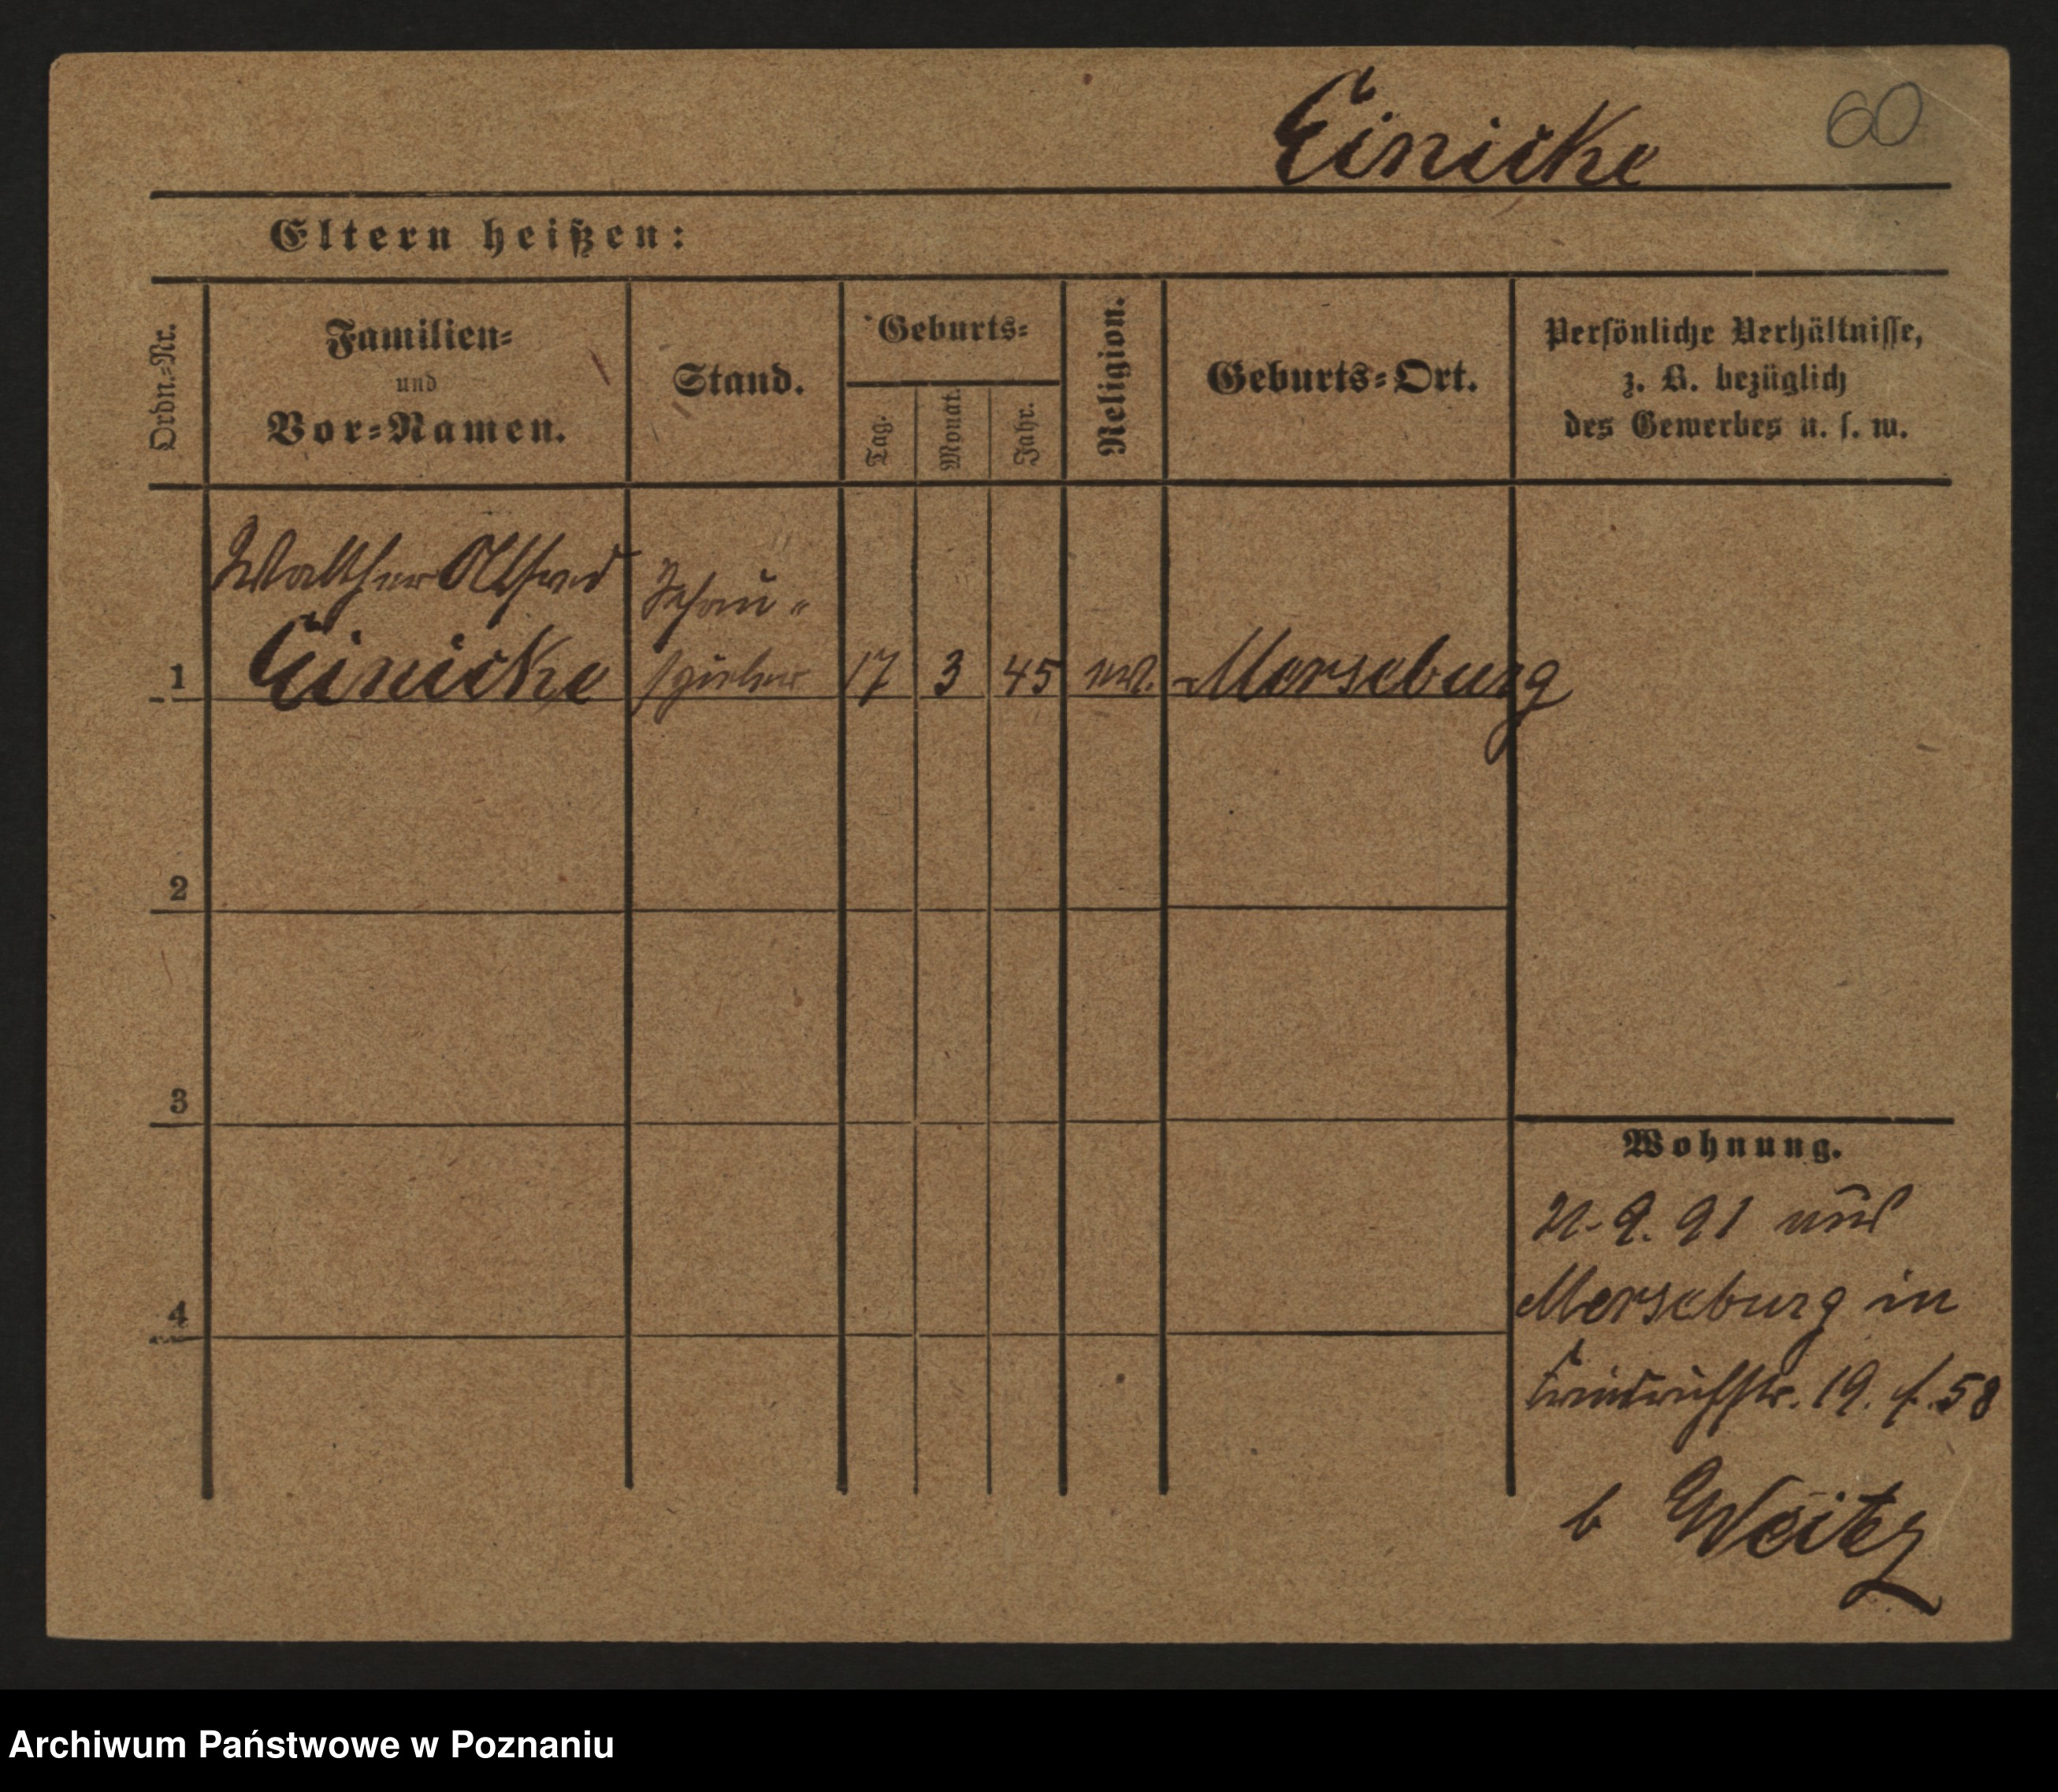 Einicke
60
Eltern heißen:
Ordn.-Nr.
Familien-
und
Vor-Namen.
Stand.
Geburts-
Tag.
Monat.
Jahr.
Religion.
Geburts-Ort.
Persönliche Verhältnisse,
z. B. bezüglich
des Gewerbes u. s. w.
Walther Alfred
Einicke
Schau-
spieler
1
17
3
45
ev.
Merseburg
2
3
4
Wohnung.
9. 91
Merseburg in
Friedrichstr. 19. f. 58
b Weitz
Archiwum Państwowe w Poznaniu